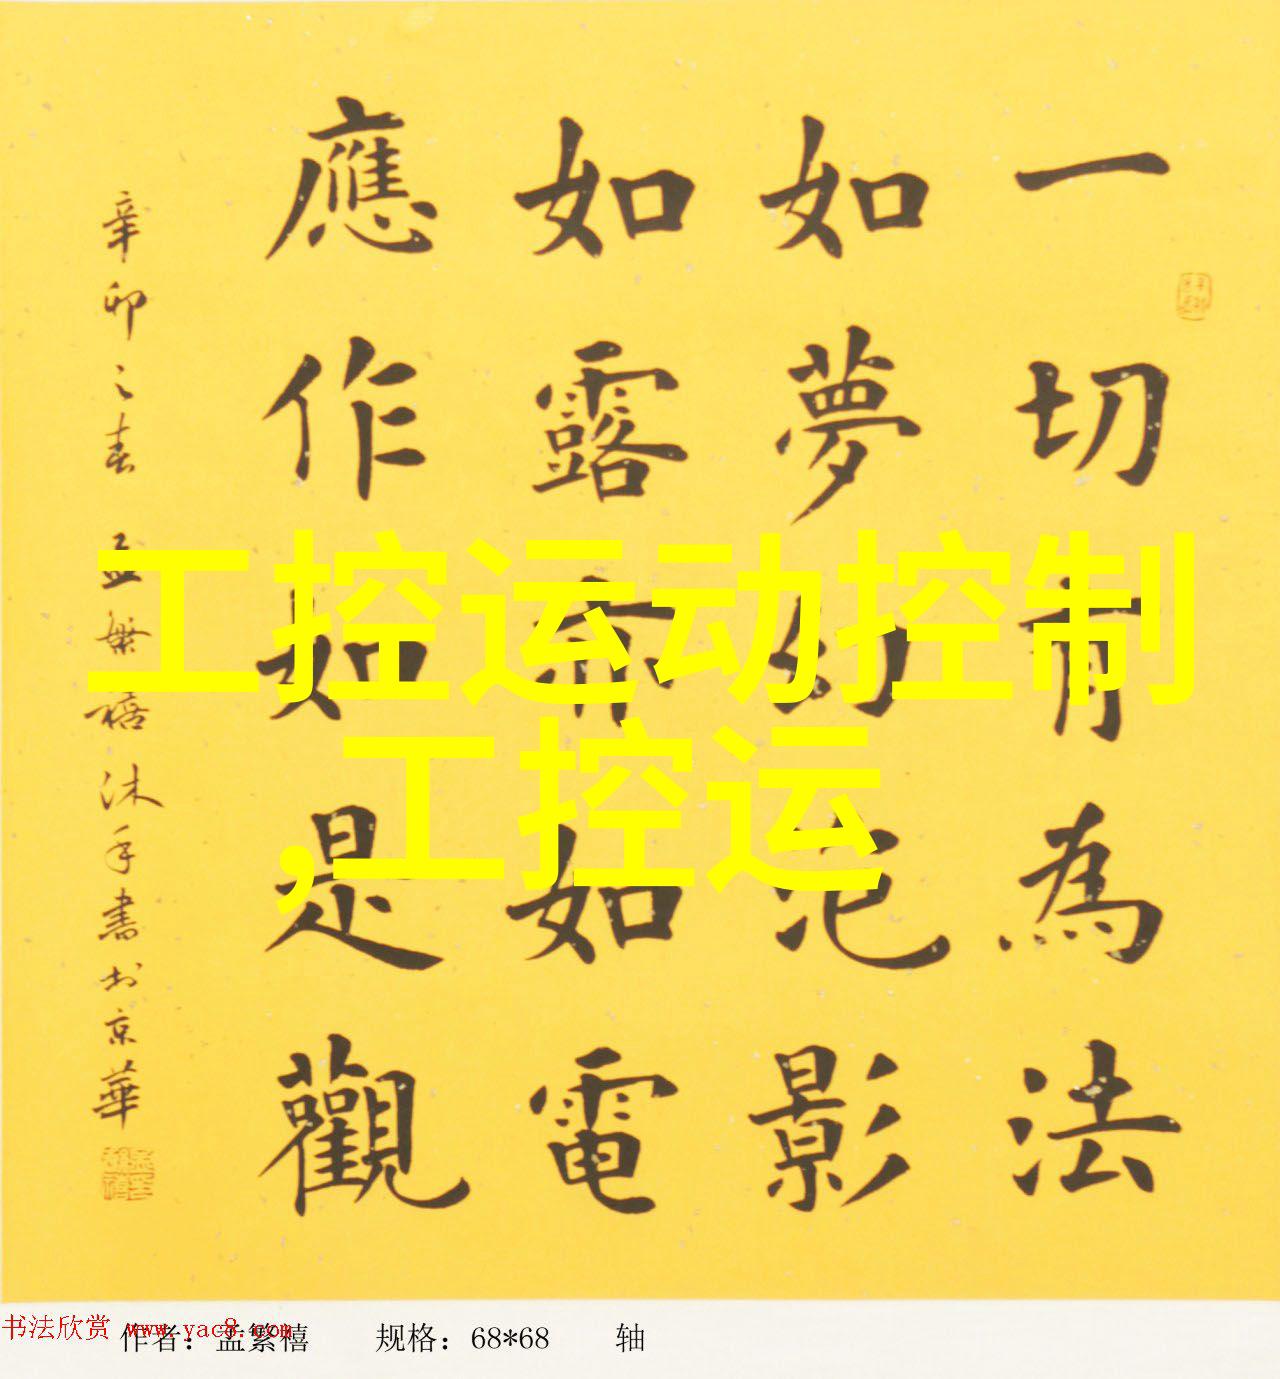 一切有為法
如夢幻泡影
如露亦如電
應作如是觀
辛卯之春 孟繁禧沐手書於京華
工控运动控制
,工控运
书法欣赏 www.yac8.com
作者：孟繁禧 规格：68*68 轴